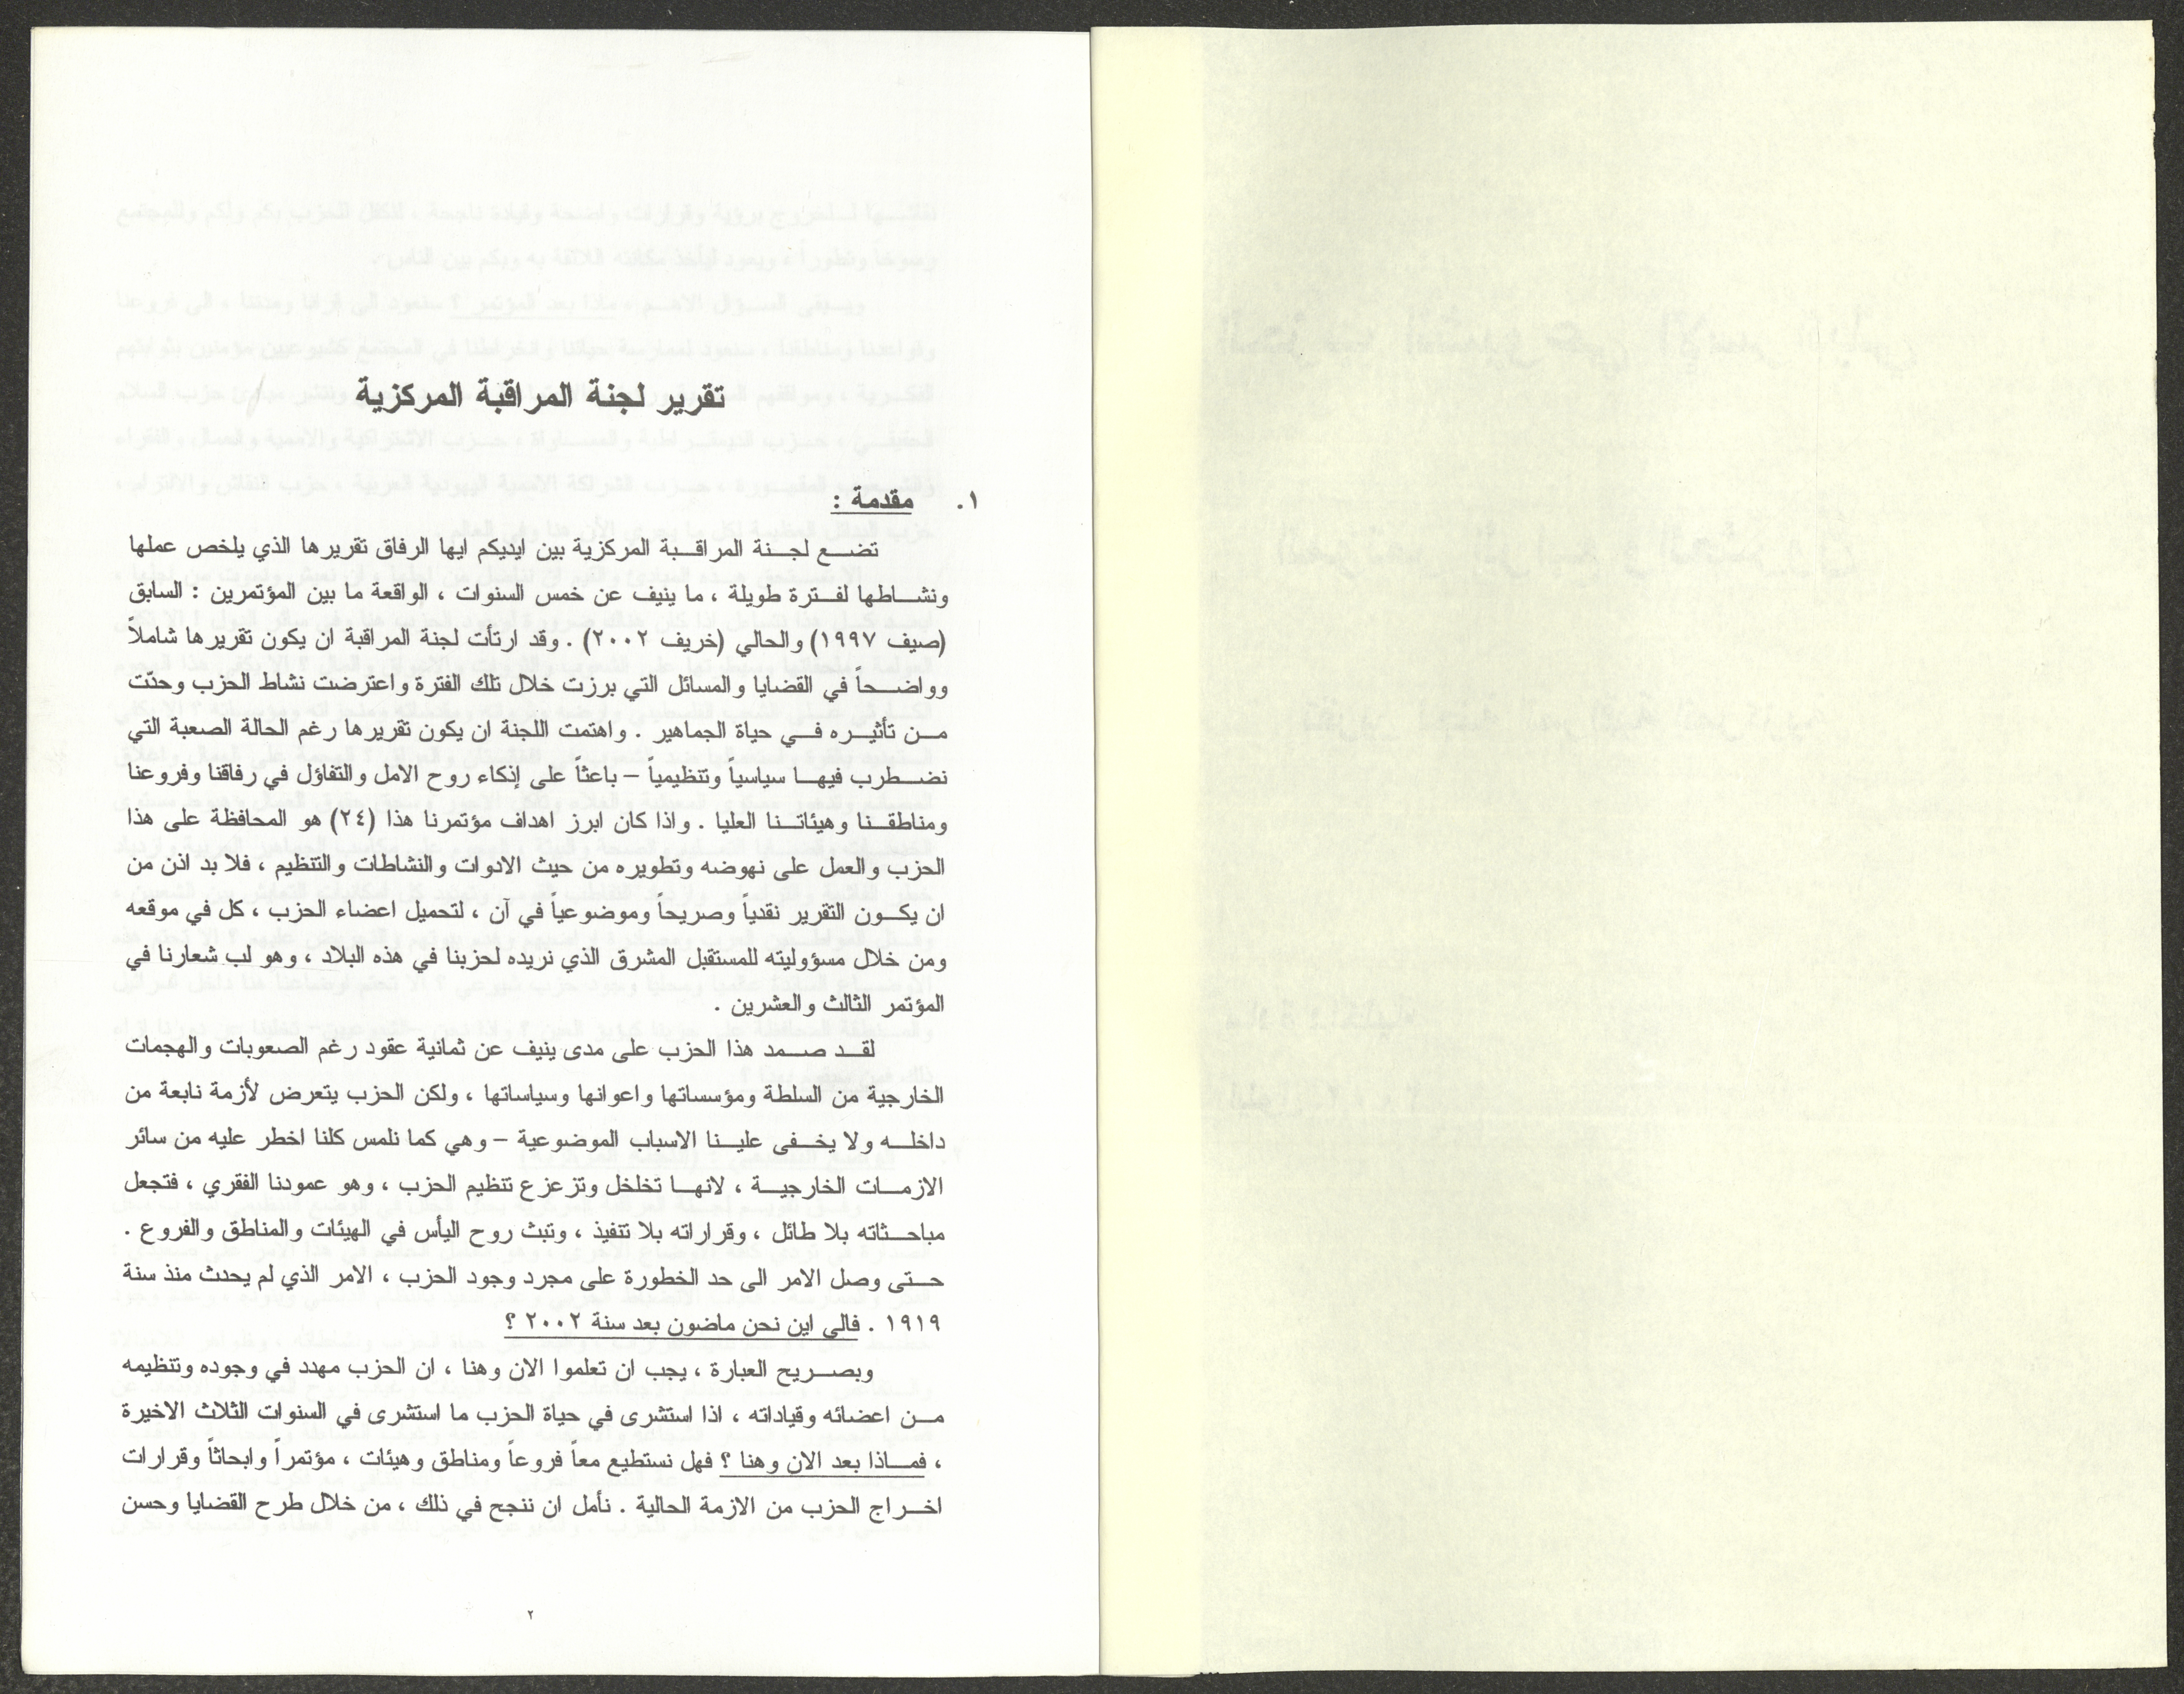 تقرير لجنة المراقبة المركزية
١. مقدمة :
تضع لجنة المراقبة المركزية بين ايديكم ايها الرفاق تقريرها الذي يلخص عملها
ونشاطها لفترة طويلة ، ما ينيف عن خمس السنوات ، الواقعة ما بين المؤتمرين : السابق
(صيف ١٩٩٧) والحالي (خريف ٢٠٠٢) . وقد ارتأت لجنة المراقبة ان يكون تقريرها شاملاً
وواضحاً في القضايا والمسائل التي برزت خلال تلك الفترة واعترضت نشاط الحزب وحدّت
من تأثيره في حياة الجماهير . واهتمت اللجنة ان يكون تقريرها رغم الحالة الصعبة التي
نضطرب فيها سياسياً وتنظيمياً – باعثاً على إذكاء روح الامل والتفاؤل في رفاقنا وفروعنا
ومناطقنا وهيئاتنا العليا . واذا كان ابرز اهداف مؤتمرنا هذا (٢٤) هو المحافظة على هذا
الحزب والعمل على نهوضه وتطويره من حيث الادوات والنشاطات والتنظيم ، فلا بد اذن من
ان يكون التقرير نقدياً وصريحاً وموضوعياً في آن ، لتحميل اعضاء الحزب ، كل في موقعه
ومن خلال مسؤوليته للمستقبل المشرق الذي نريده لحزبنا في هذه البلاد ، وهو لب شعارنا في
المؤتمر الثالث والعشرين .
لقد صمد هذا الحزب على مدى ينيف عن ثمانية عقود رغم الصعوبات والهجمات
الخارجية من السلطة ومؤسساتها واعوانها وسياساتها ، ولكن الحزب يتعرض لأزمة نابعة من
داخله ولا يخفى علينا الاسباب الموضوعية – وهي كما نلمس كلنا اخطر عليه من سائر
الازمات الخارجية ، لانها تخلخل وتزعزع تنظيم الحزب ، وهو عمودنا الفقري ، فتجعل
مباحثاته بلا طائل ، وقراراته بلا تنفيذ ، وتبث روح اليأس في الهيئات والمناطق والفروع .
حتى وصل الامر الى حد الخطورة على مجرد وجود الحزب ، الامر الذي لم يحدث منذ سنة
١٩١٩ . فالى اين نحن ماضون بعد سنة ٢٠٠٢ ؟
وبصريح العبارة ، يجب ان تعلموا الان وهنا ، ان الحزب مهدد في وجوده وتنظيمه
من اعضائه وقياداته ، اذا استشرى في حياة الحزب ما استشرى في السنوات الثلاث الاخيرة
، فماذا بعد الان وهنا ؟ فهل نستطيع معاً فروعاً ومناطق وهيئات ، مؤتمراً وابحاثاً وقرارات
اخراج الحزب من الازمة الحالية . نأمل ان ننجح في ذلك ، من خلال طرح القضايا وحسن
٢